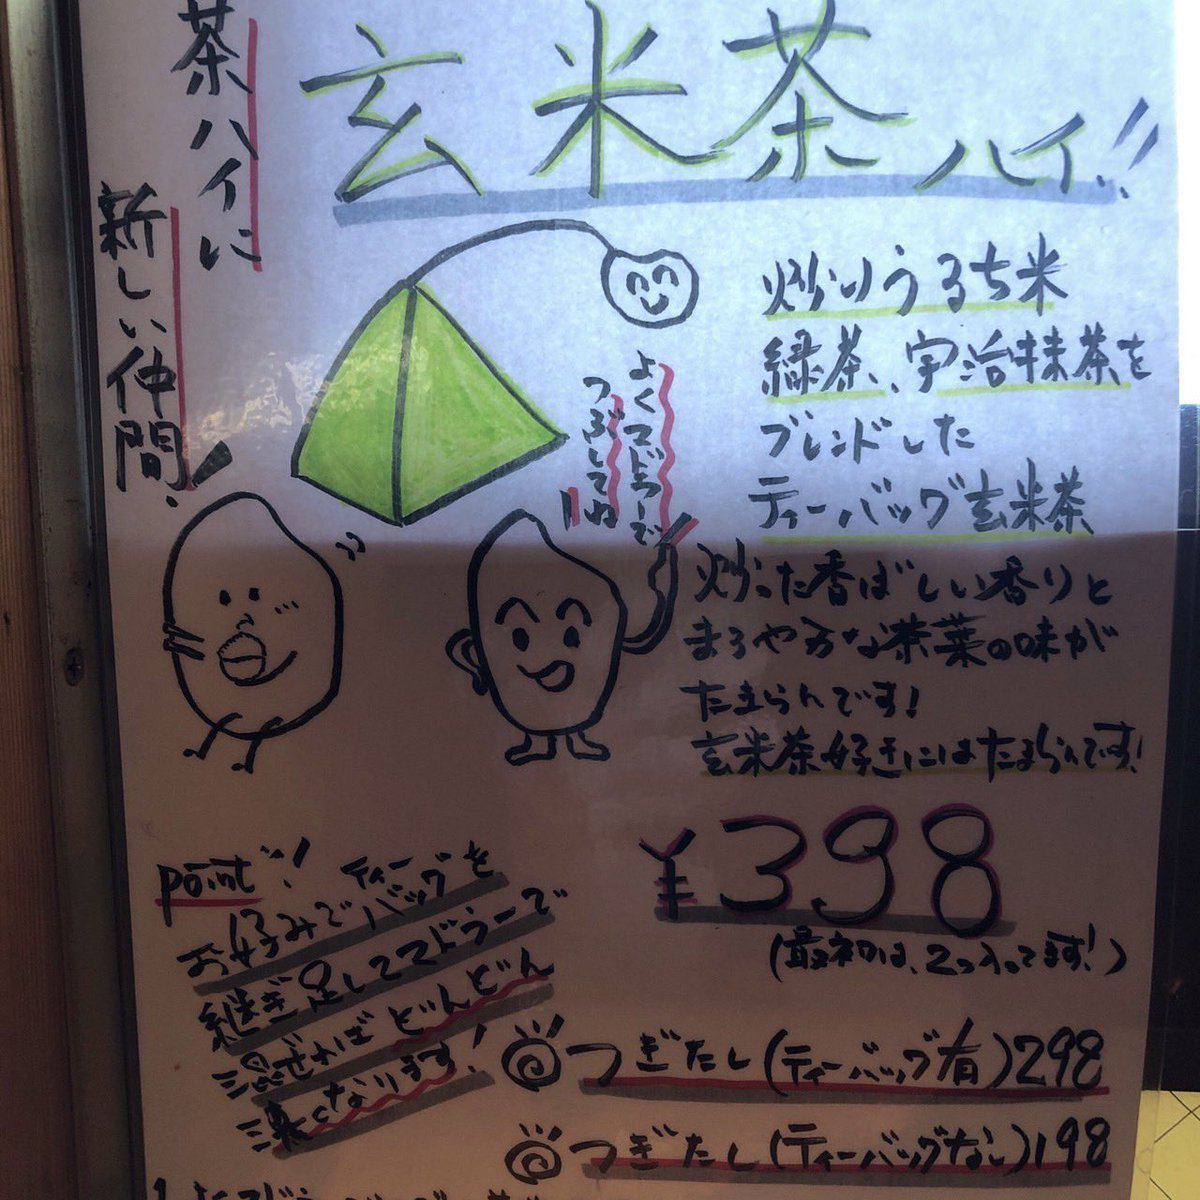 茶ハイに
新しい仲間、
玄米茶ハイ!!
よくマドラーで
つぶしてね
炒りうるち米
緑茶、宇治抹茶を
ブレンドした
ティーバッグ玄米茶
炒った香ばしい香りと
まろやかな茶葉の味が
たまらんです!
玄米茶好きにはたまらんです!
¥398
(最初は、2つ入ってます!)
point!!
お好みでティーバッグを
継ぎ足してマドラーで
混ぜればどんどん
濃くなります!
つぎたし(ティーバッグ有)298
つぎたし(ティーバッグなし)198